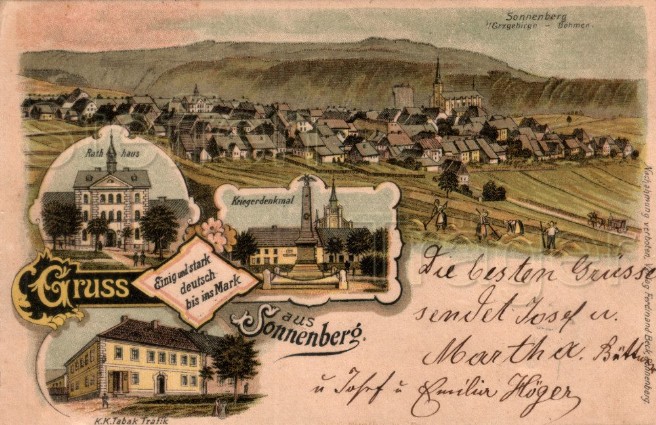 Sonnenberg
i/Erzgebirge – Böhmen.
Rathhaus
Kriegerdenkmal
Gruss
Einig und stark
deutsch
bis ins Mark
aus
Sonnenberg.
K.K. Tabak Trafik
Die besten Grüsse
sendet Josef u.
Martha.
u Josef u Emilia Höger
Nachahmung verboten. Verlag Ferdinand Beck, Sonnenberg.